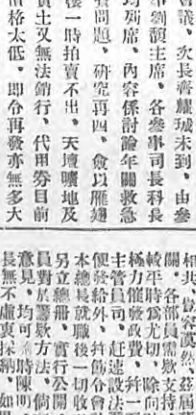 會議、次長齊耀珹未到、由參
事劉馥主席、各參事司長科長
均列席、內容係討論年關救急
費問題、研究再四、僉以雁翅
樓一時拍賣不出、天壇曠地及
黃土又無法銷行、代用劵目前
價格太低、卽令再發亦無多大
關、各部員需欵支持
較平時爲尤切、除向
極力催發政費、幷一面
主管司、赶速設法
便發給外、幷飭分會
本總長就職後一切收
另立總册、實行公開、
員對於籌欵方法、倘
意見、均可隨時陳明、
長無不虛衷採納、如果